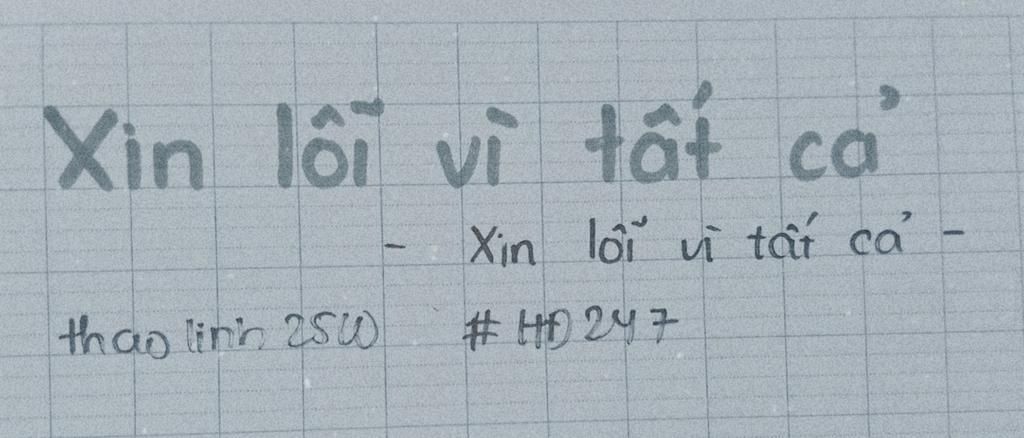 Xin lỗi vì tất cả
- Xin lỗi vì tất cả -
thao linh 25W #HĐ247